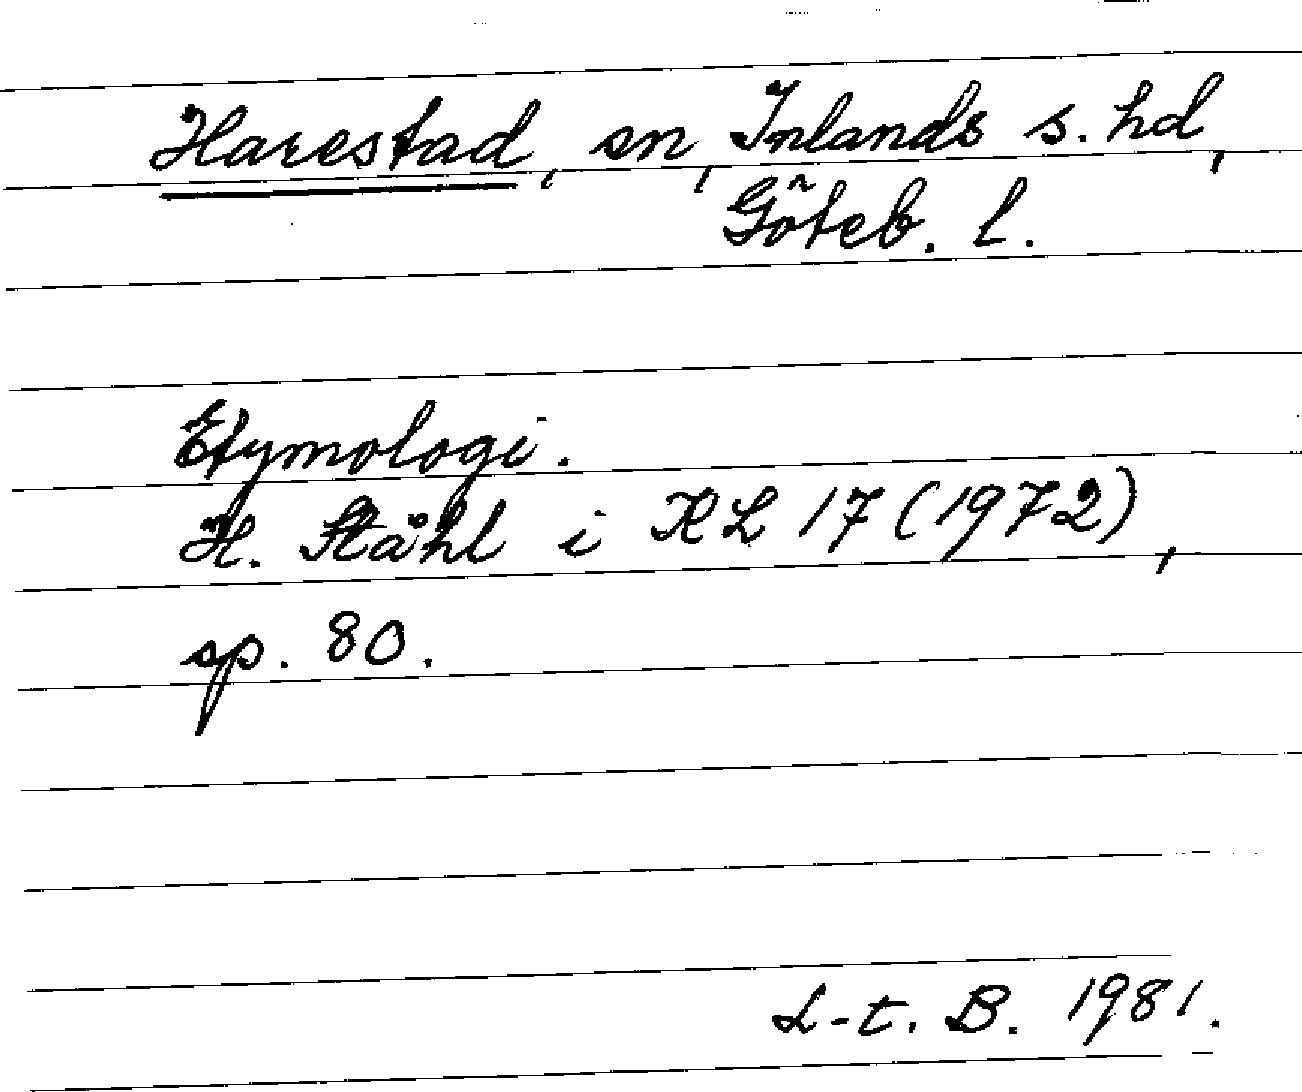 Harestad, sn, Inlands s. hd,
Göteb. l.
Etymologi.
H. Ståhl i KL 17 (1972),
sp. 80.
L-t. B. 1981.